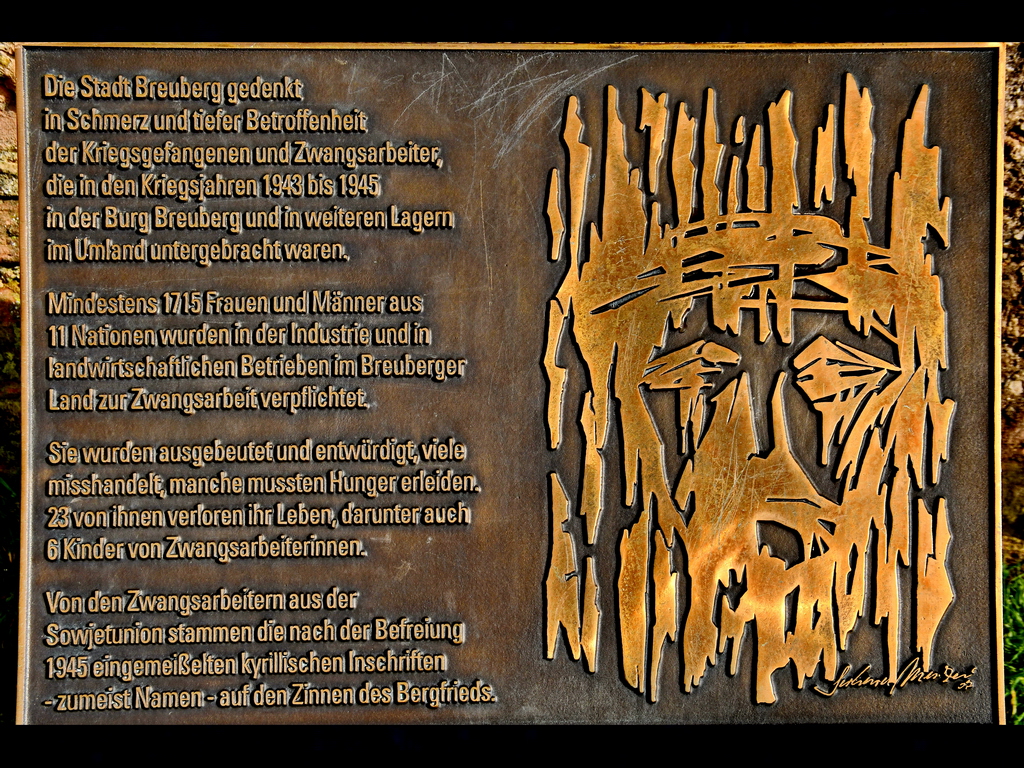 Die Stadt Breuberg gedenkt
in Schmerz und tiefer Betroffenheit
der Kriegsgefangenen und Zwangsarbeiter,
die in den Kriegsjahren 1943 bis 1945
in der Burg Breuberg und in weiteren Lagern
im Umland untergebracht waren.
Mindestens 1715 Frauen und Männer aus
11 Nationen wurden in der Industrie und in
landwirtschaftlichen Betrieben im Breuberger
Land zur Zwangsarbeit verpflichtet.
Sie wurden ausgebeutet und entwürdigt, viele
misshandelt, manche mussten Hunger erleiden.
23 von ihnen verloren ihr Leben, darunter auch
6 Kinder von Zwangsarbeiterinnen.
Von den Zwangsarbeitern aus der
Sowjetunion stammen die nach der Befreiung
1945 eingemeißelten kyrillischen Inschriften
- zumeist Namen - auf den Zinnen des Bergfrieds.